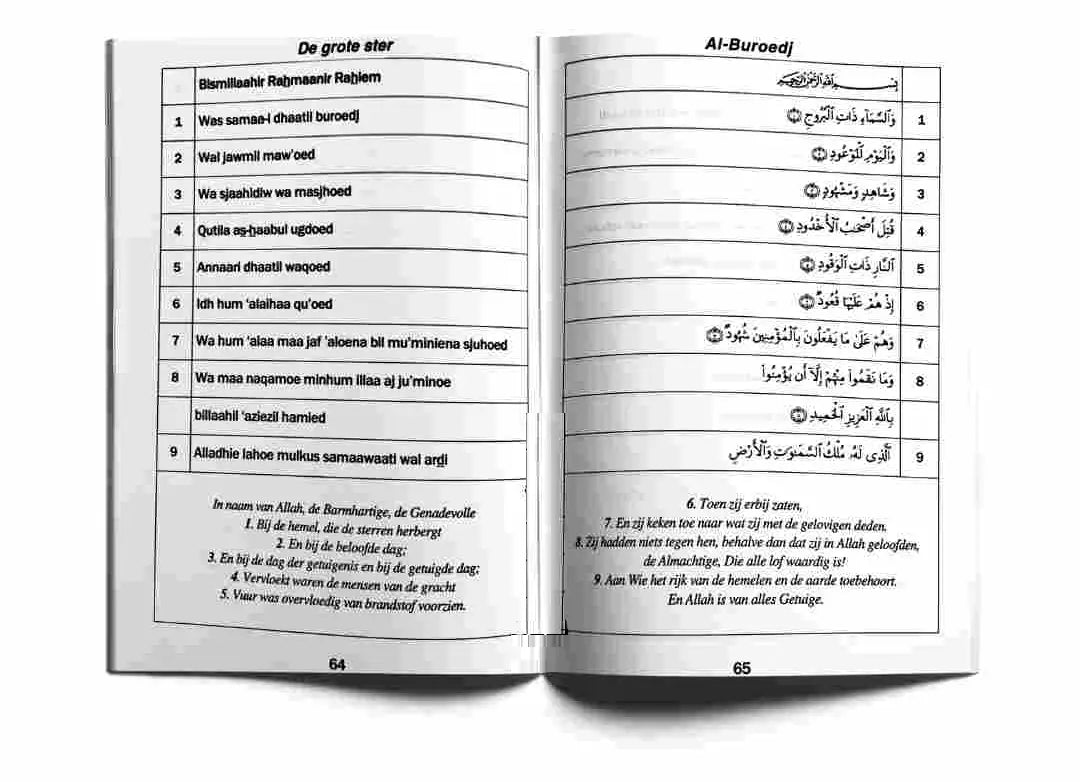 De grote ster
Bismillaahir Raḥmaanir Raḥiem
1 Was samaa-i dhaatil buroedj
2 Wal jawmil maw'oed
3 Wa sjaahidiw wa masjhoed
4 Qutila aṣ-ḥaabul ugdoed
5 Annaari dhaatil waqoed
6 Idh hum 'alaihaa qu'oed
7 Wa hum 'alaa maa jaf 'aloena bil mu'miniena sjuhoed
8 Wa maa naqamoe minhum illaa aj ju'minoe
billaahil 'aziezil hamied
9 Alladhie lahoe mulkus samaawaati wal arḍi
In naam van Allah, de Barmhartige, de Genadevolle
1. Bij de hemel, die de sterren herbergt
2. En bij de beloofde dag;
3. En bij de dag der getuigenis en bij de getuigde dag;
4. Vervloekt waren de mensen van de gracht
5. Vuur was overvloedig van brandstof voorzien.
64
Al-Buroedj
بِسْمِ ٱللَّهِ ٱلرَّحْمَٰنِ ٱلرَّحِيمِ
وَٱلسَّمَآءِ ذَاتِ ٱلْبُرُوجِ 1
وَٱلْيَوْمِ ٱلْمَوْعُودِ 2
وَشَاهِدٍ وَمَشْهُودٍ 3
قُتِلَ أَصْحَٰبُ ٱلْأُخْدُودِ 4
ٱلنَّارِ ذَاتِ ٱلْوَقُودِ 5
إِذْ هُمْ عَلَيْهَا قُعُودٌ 6
وَهُمْ عَلَىٰ مَا يَفْعَلُونَ بِٱلْمُؤْمِنِينَ شُهُودٌ 7
وَمَا نَقَمُوا۟ مِنْهُمْ إِلَّآ أَن يُؤْمِنُوا۟ 8
بِٱللَّهِ ٱلْعَزِيزِ ٱلْحَمِيدِ
ٱلَّذِى لَهُۥ مُلْكُ ٱلسَّمَٰوَٰتِ وَٱلْأَرْضِ 9
6. Toen zij erbij zaten,
7. En zij keken toe naar wat zij met de gelovigen deden.
8. Zij hadden niets tegen hen, behalve dan dat zij in Allah geloofden,
de Almachtige, Die alle lof waardig is!
9. Aan Wie het rijk van de hemelen en de aarde toebehoort.
En Allah is van alles Getuige.
65